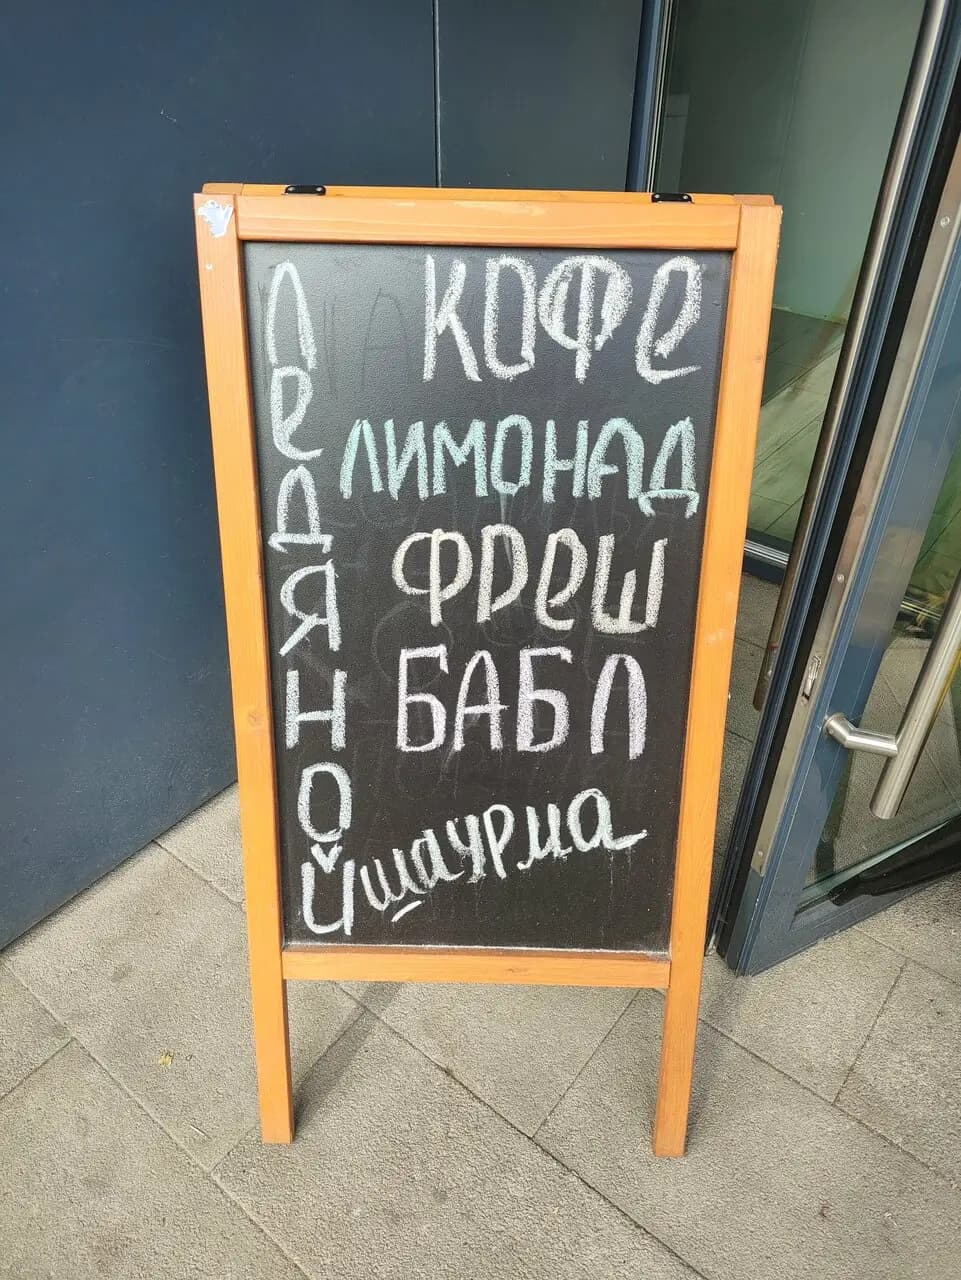 ЛЕДЯНОЙ
КОФЕ
ЛИМОНАД
ФРЕШ
БАБЛ
шаурма